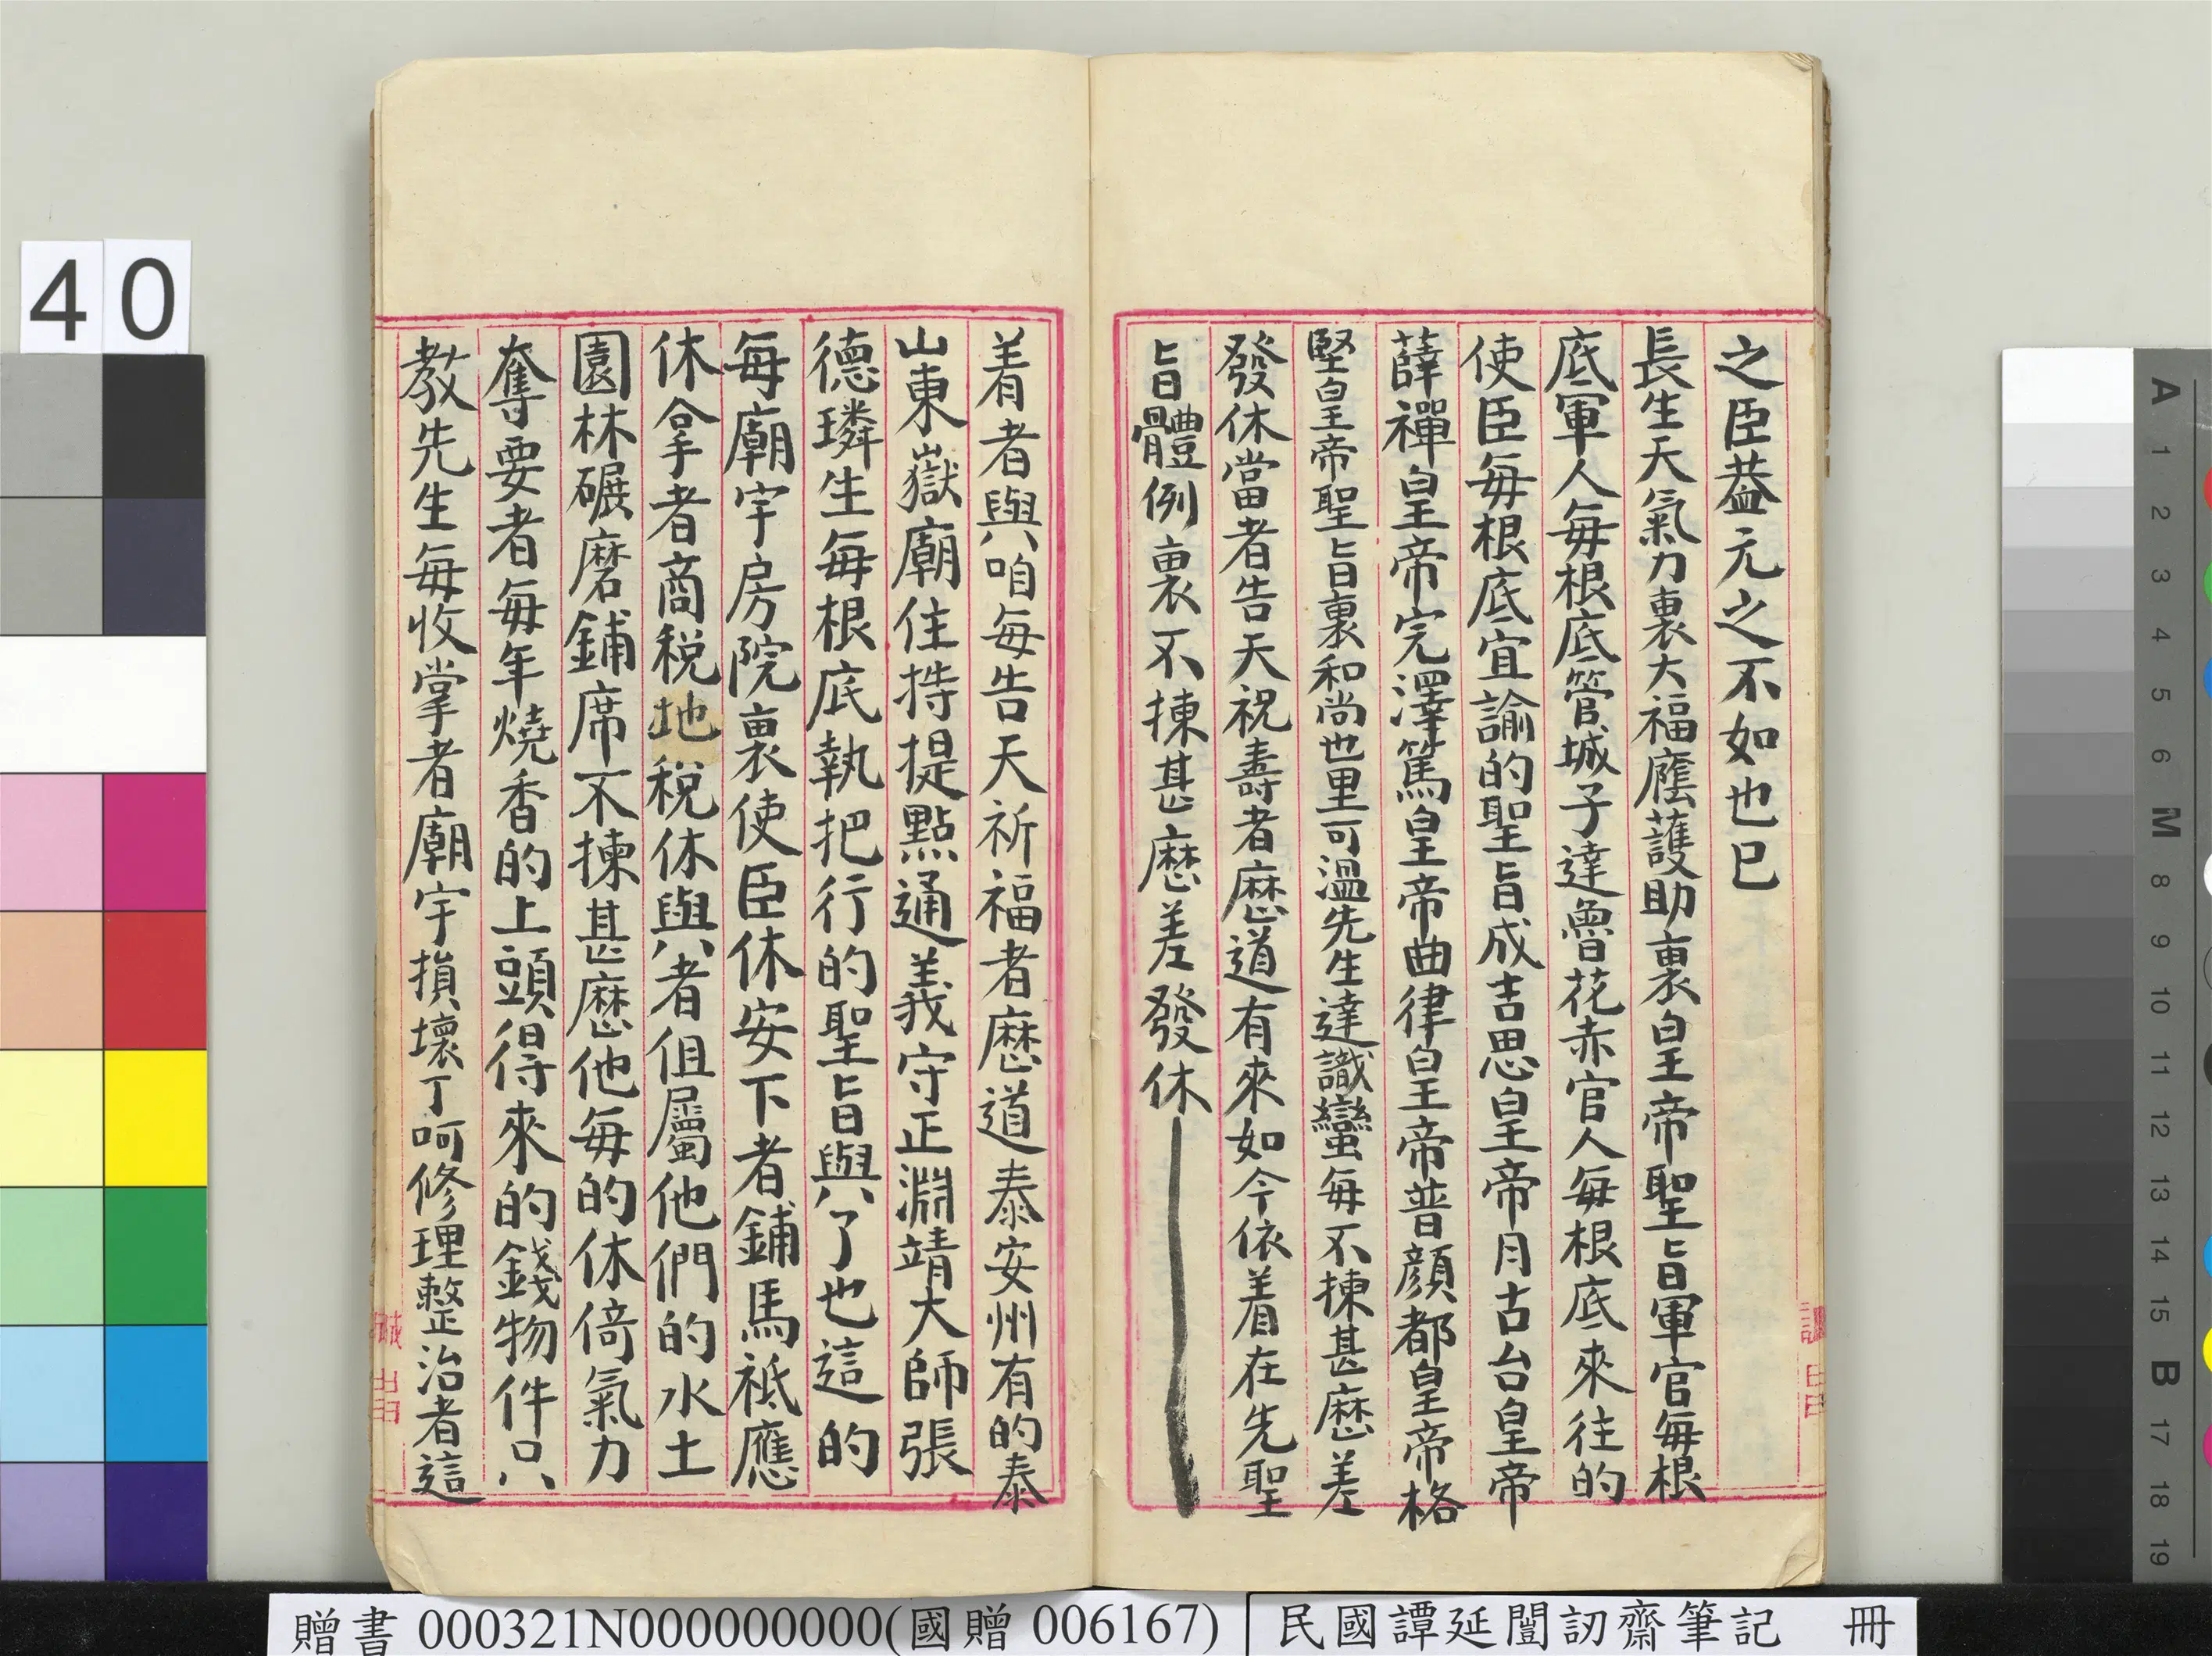 之臣蓋元之不如也已
長生天氣力裏大福廕護助裏皇帝聖旨軍官每根
底軍人每根底管城子達魯花赤官人每根底來往的
使臣每根底宜諭的聖旨成吉思皇帝月古台皇帝
薛禪皇帝完澤篤皇帝曲律皇帝普顏都皇帝格
堅皇帝聖旨裏和尚也里可溫先生達識蠻每不揀甚麽差
發休當者告天祝壽者麽道有來如今依着在先聖
旨體例裏不揀甚麽差發休
着者與咱每告天祈福者麽道泰安州有的泰
山東嶽廟住持提點通義守正淵靖大師張
德璘生每根底執把行的聖旨與了也這的
每廟宇房院裏使臣休安下者鋪馬祗應
休拿者商稅地稅休與者但屬他們的水土
園林碾磨鋪席不揀甚麽他每的休倚氣力
奪要者每年燒香的上頭得來的錢物件只
教先生每收掌者廟宇損壞了呵修理整治者這
40
贈書 000321N000000000(國贈 006167)
民國譚延闓訒齋筆記 冊
A 1 2 3 4 5 6 M 8 9 10 11 12 13 14 15 B 17 18 19